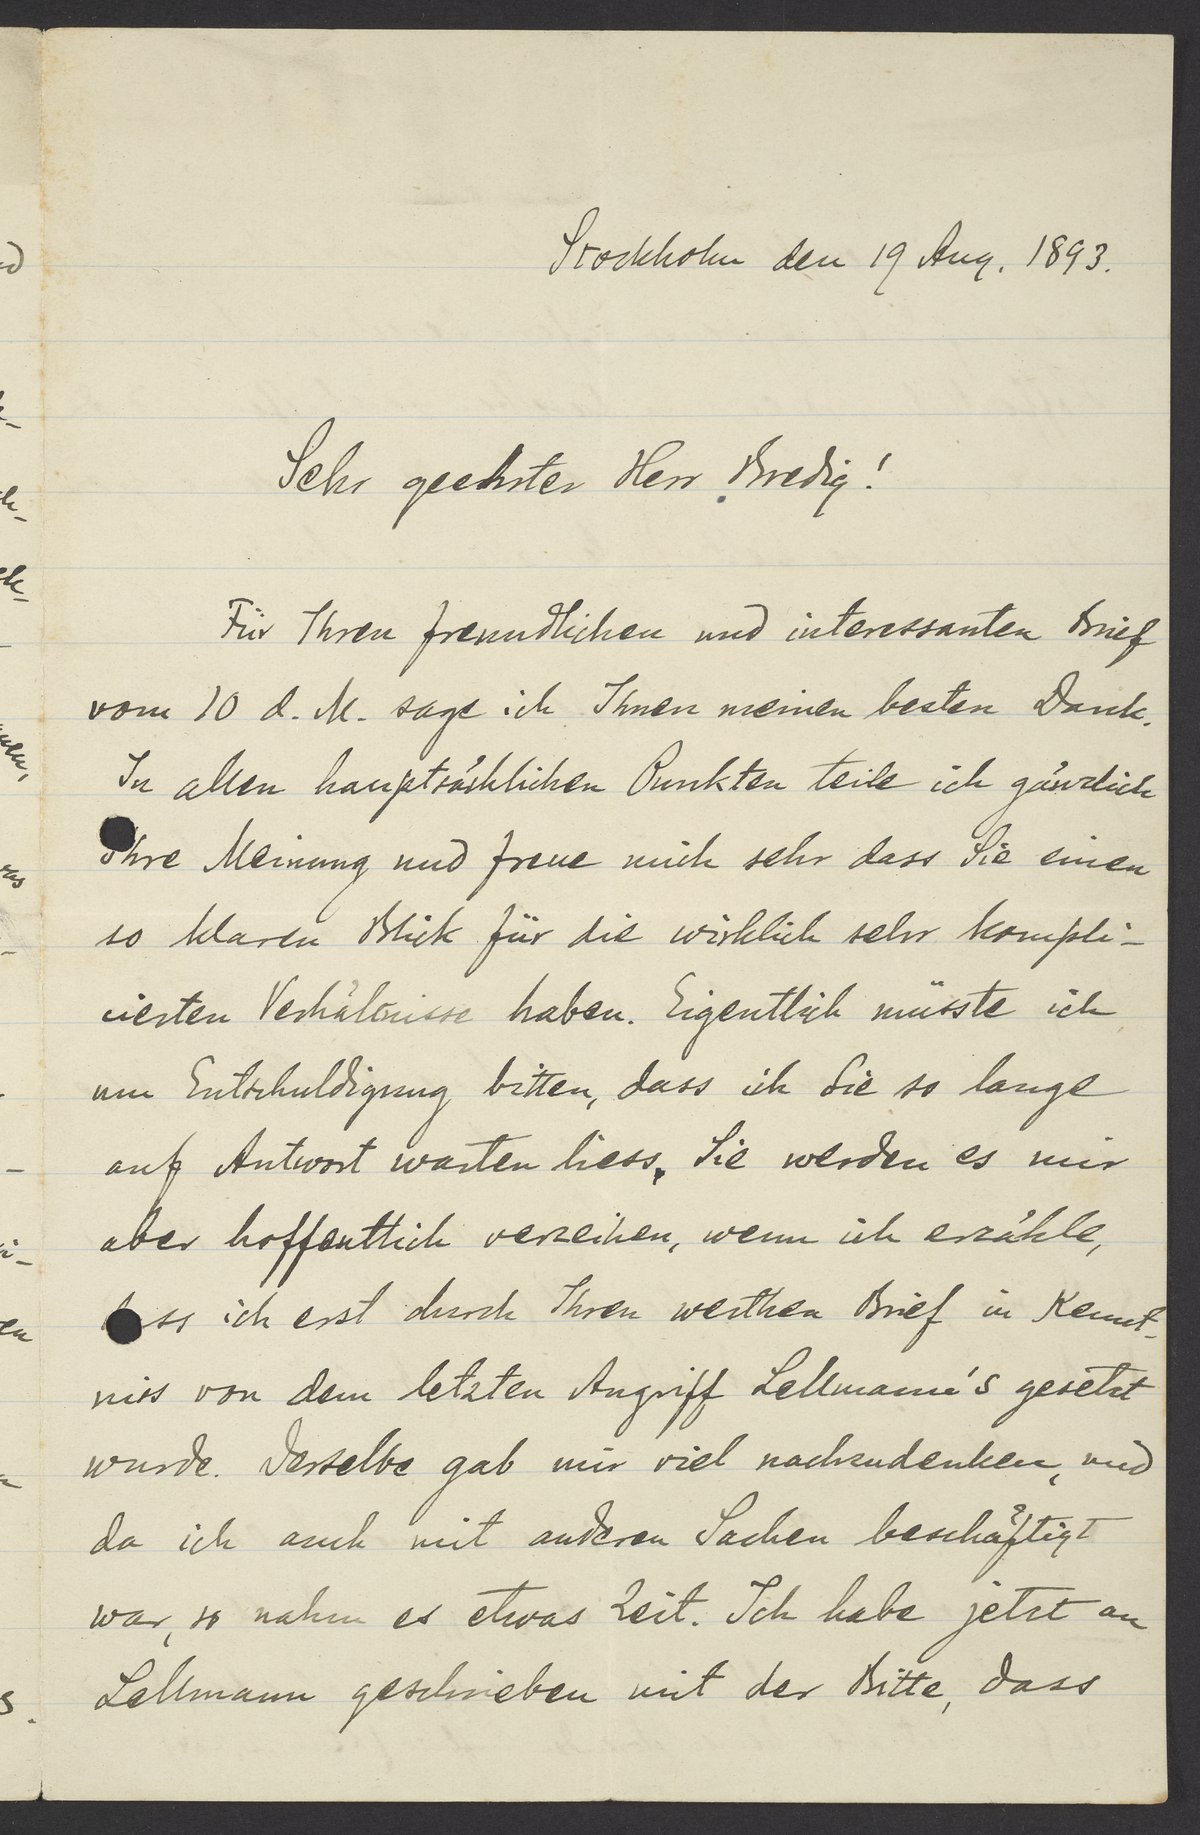 Stockholm den 19 Aug. 1893.
Sehr geehrter Herr Bredig!
Für Ihren freundlichen und interessanten Brief
vom 10 d. M. sage ich Ihnen meinen besten Dank.
In allen hauptsächlichen Punkten teile ich gänzlich
Ihre Meinung und freue mich sehr dass Sie einen
so klaren Blick für die wirklich sehr kompli-
cierten Verhältnisse haben. Eigentlich müsste ich
um Entschuldigung bitten, dass ich Sie so lange
auf Antwort warten liess. Sie werden es mir
aber hoffentlich verzeihen, wenn ich erzähle,
dass ich erst durch Ihren werthen Brief in Kennt-
niss von dem letzten Angriff Lellmann's gesetzt
wurde. Derselbe gab mir viel nachzudenken, und
da ich auch mit anderen Sachen beschäftigt
war, so nahm es etwas Zeit. Ich habe jetzt an
Lellmann geschrieben mit der Bitte, dass